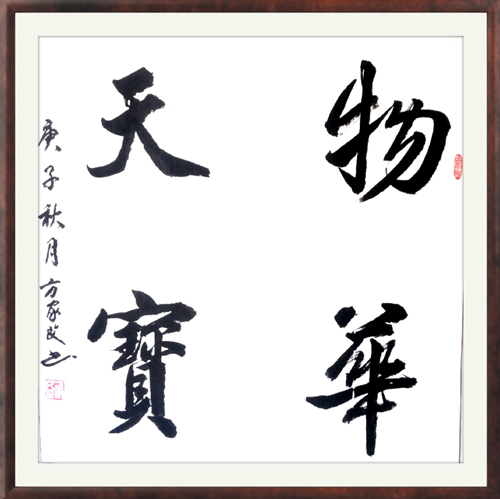 物華
天寶
庚子秋月方家政书